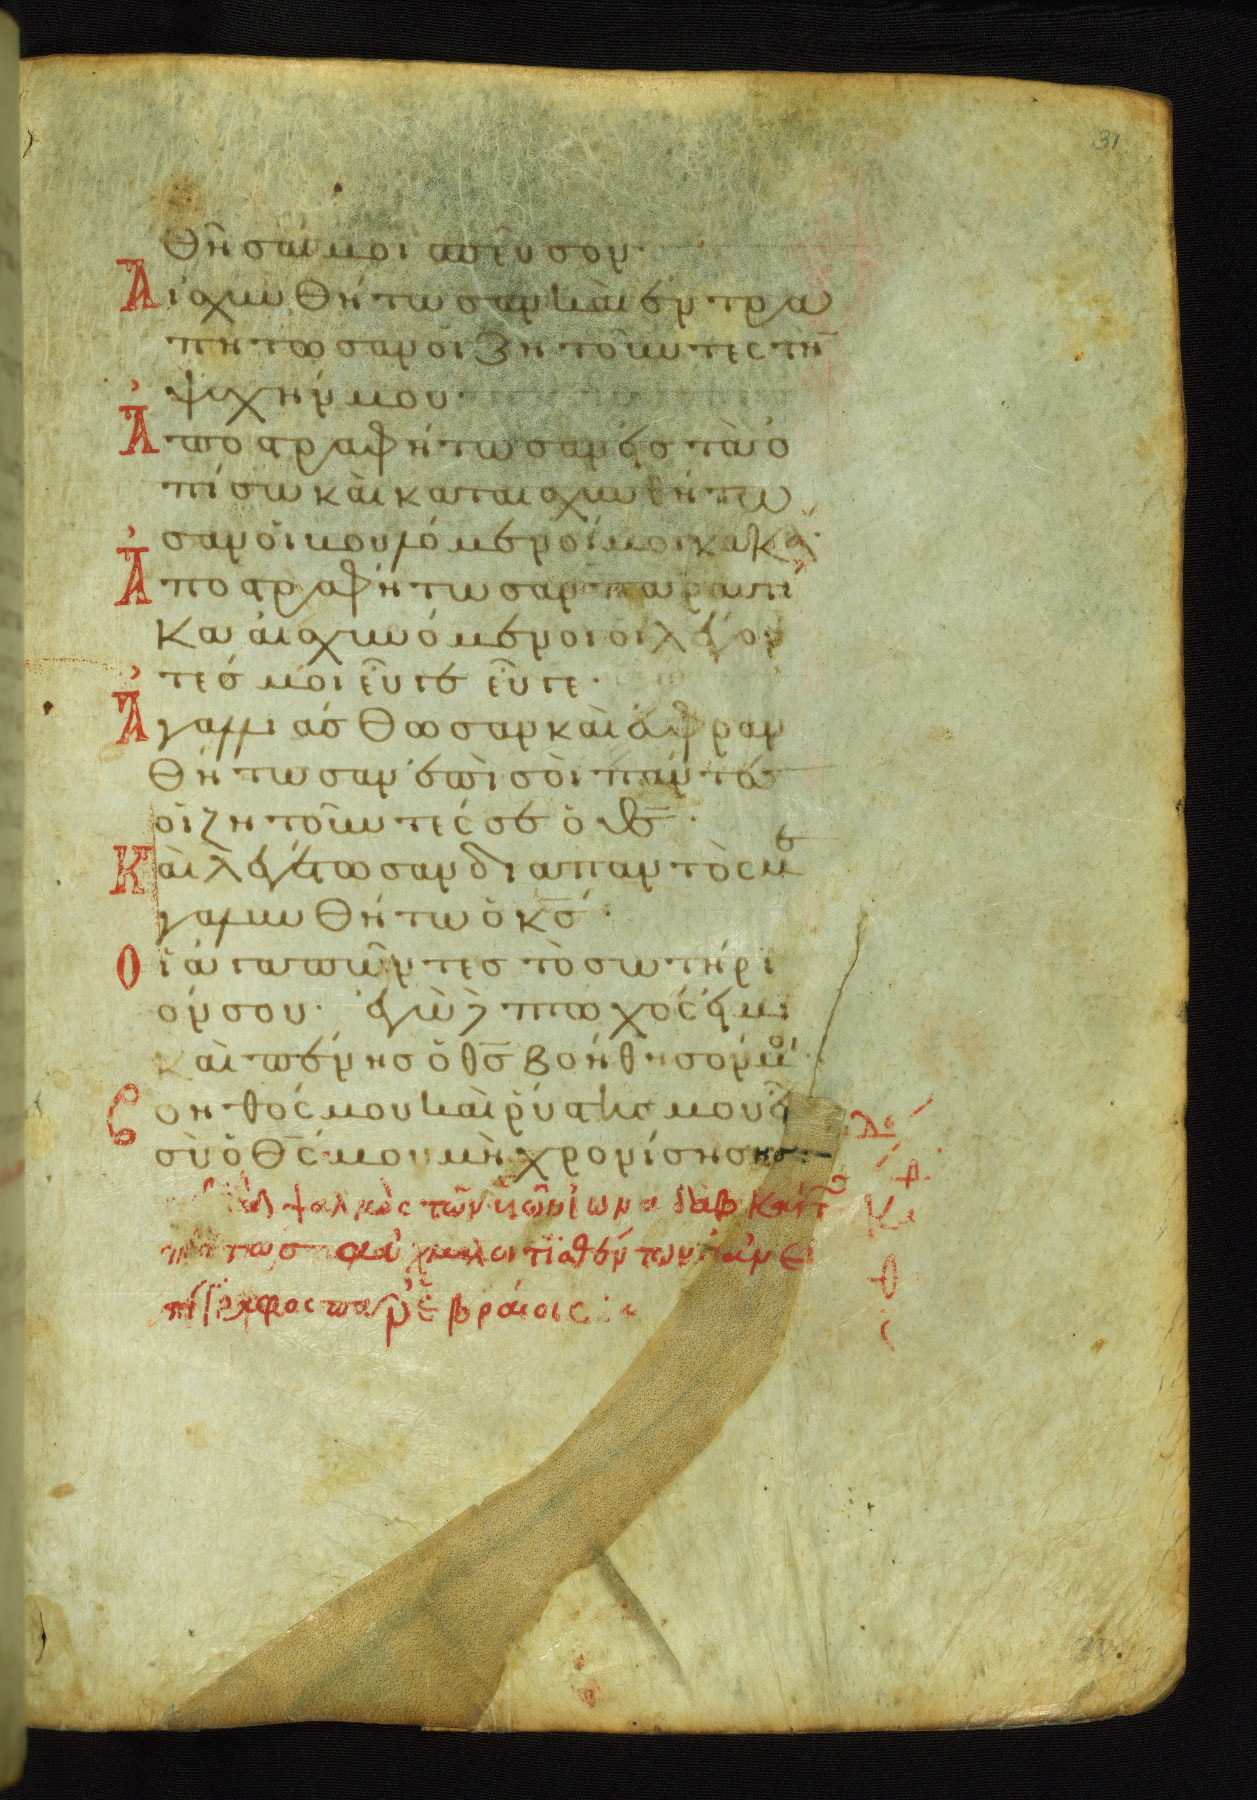 31
θῆσαί μοι σπεῦσον·
Αἰσχυνθήτωσαν καὶ ἐντρα
πήτωσαν οἱ ζητοῦντες τὴν
ψυχήν μου·
Ἀποστραφήτωσαν εἰς τὰ ὀ
πίσω καὶ καταισχυνθήτω
σαν οἱ βουλόμενοί μοι κακά·
Ἀποστραφήτωσαν παραυτί
κα αἰσχυνόμενοι οἱ λέγον
τές μοι εὖγε εὖγε·
Ἀγαλλιάσθωσαν καὶ εὐφραν
θήτωσαν ἐπὶ σοὶ πάντες
οἱ ζητοῦντές σε ὁ θς·
Καὶ λεγέτωσαν διαπαντὸς με
γαλυνθήτω ὁ κς·
Οἱ ἀγαπῶντες τὸ σωτήρι
όν σου· ἐγὼ δὲ πτωχός εἰμι
καὶ πένης ὁ θς βοήθησόν μοι·
Βοηθός μου καὶ ῥύστης μου εἶ
σὺ ὁ θς μου μὴ χρονίσῃσῃς:
ψαλμὸς τῶν υἱῶν ἰωνα δαδ και τ
πρώτων αἰχμαλωτισθέντων ἀνε
πίγραφος παρ' ἑβραίοις: